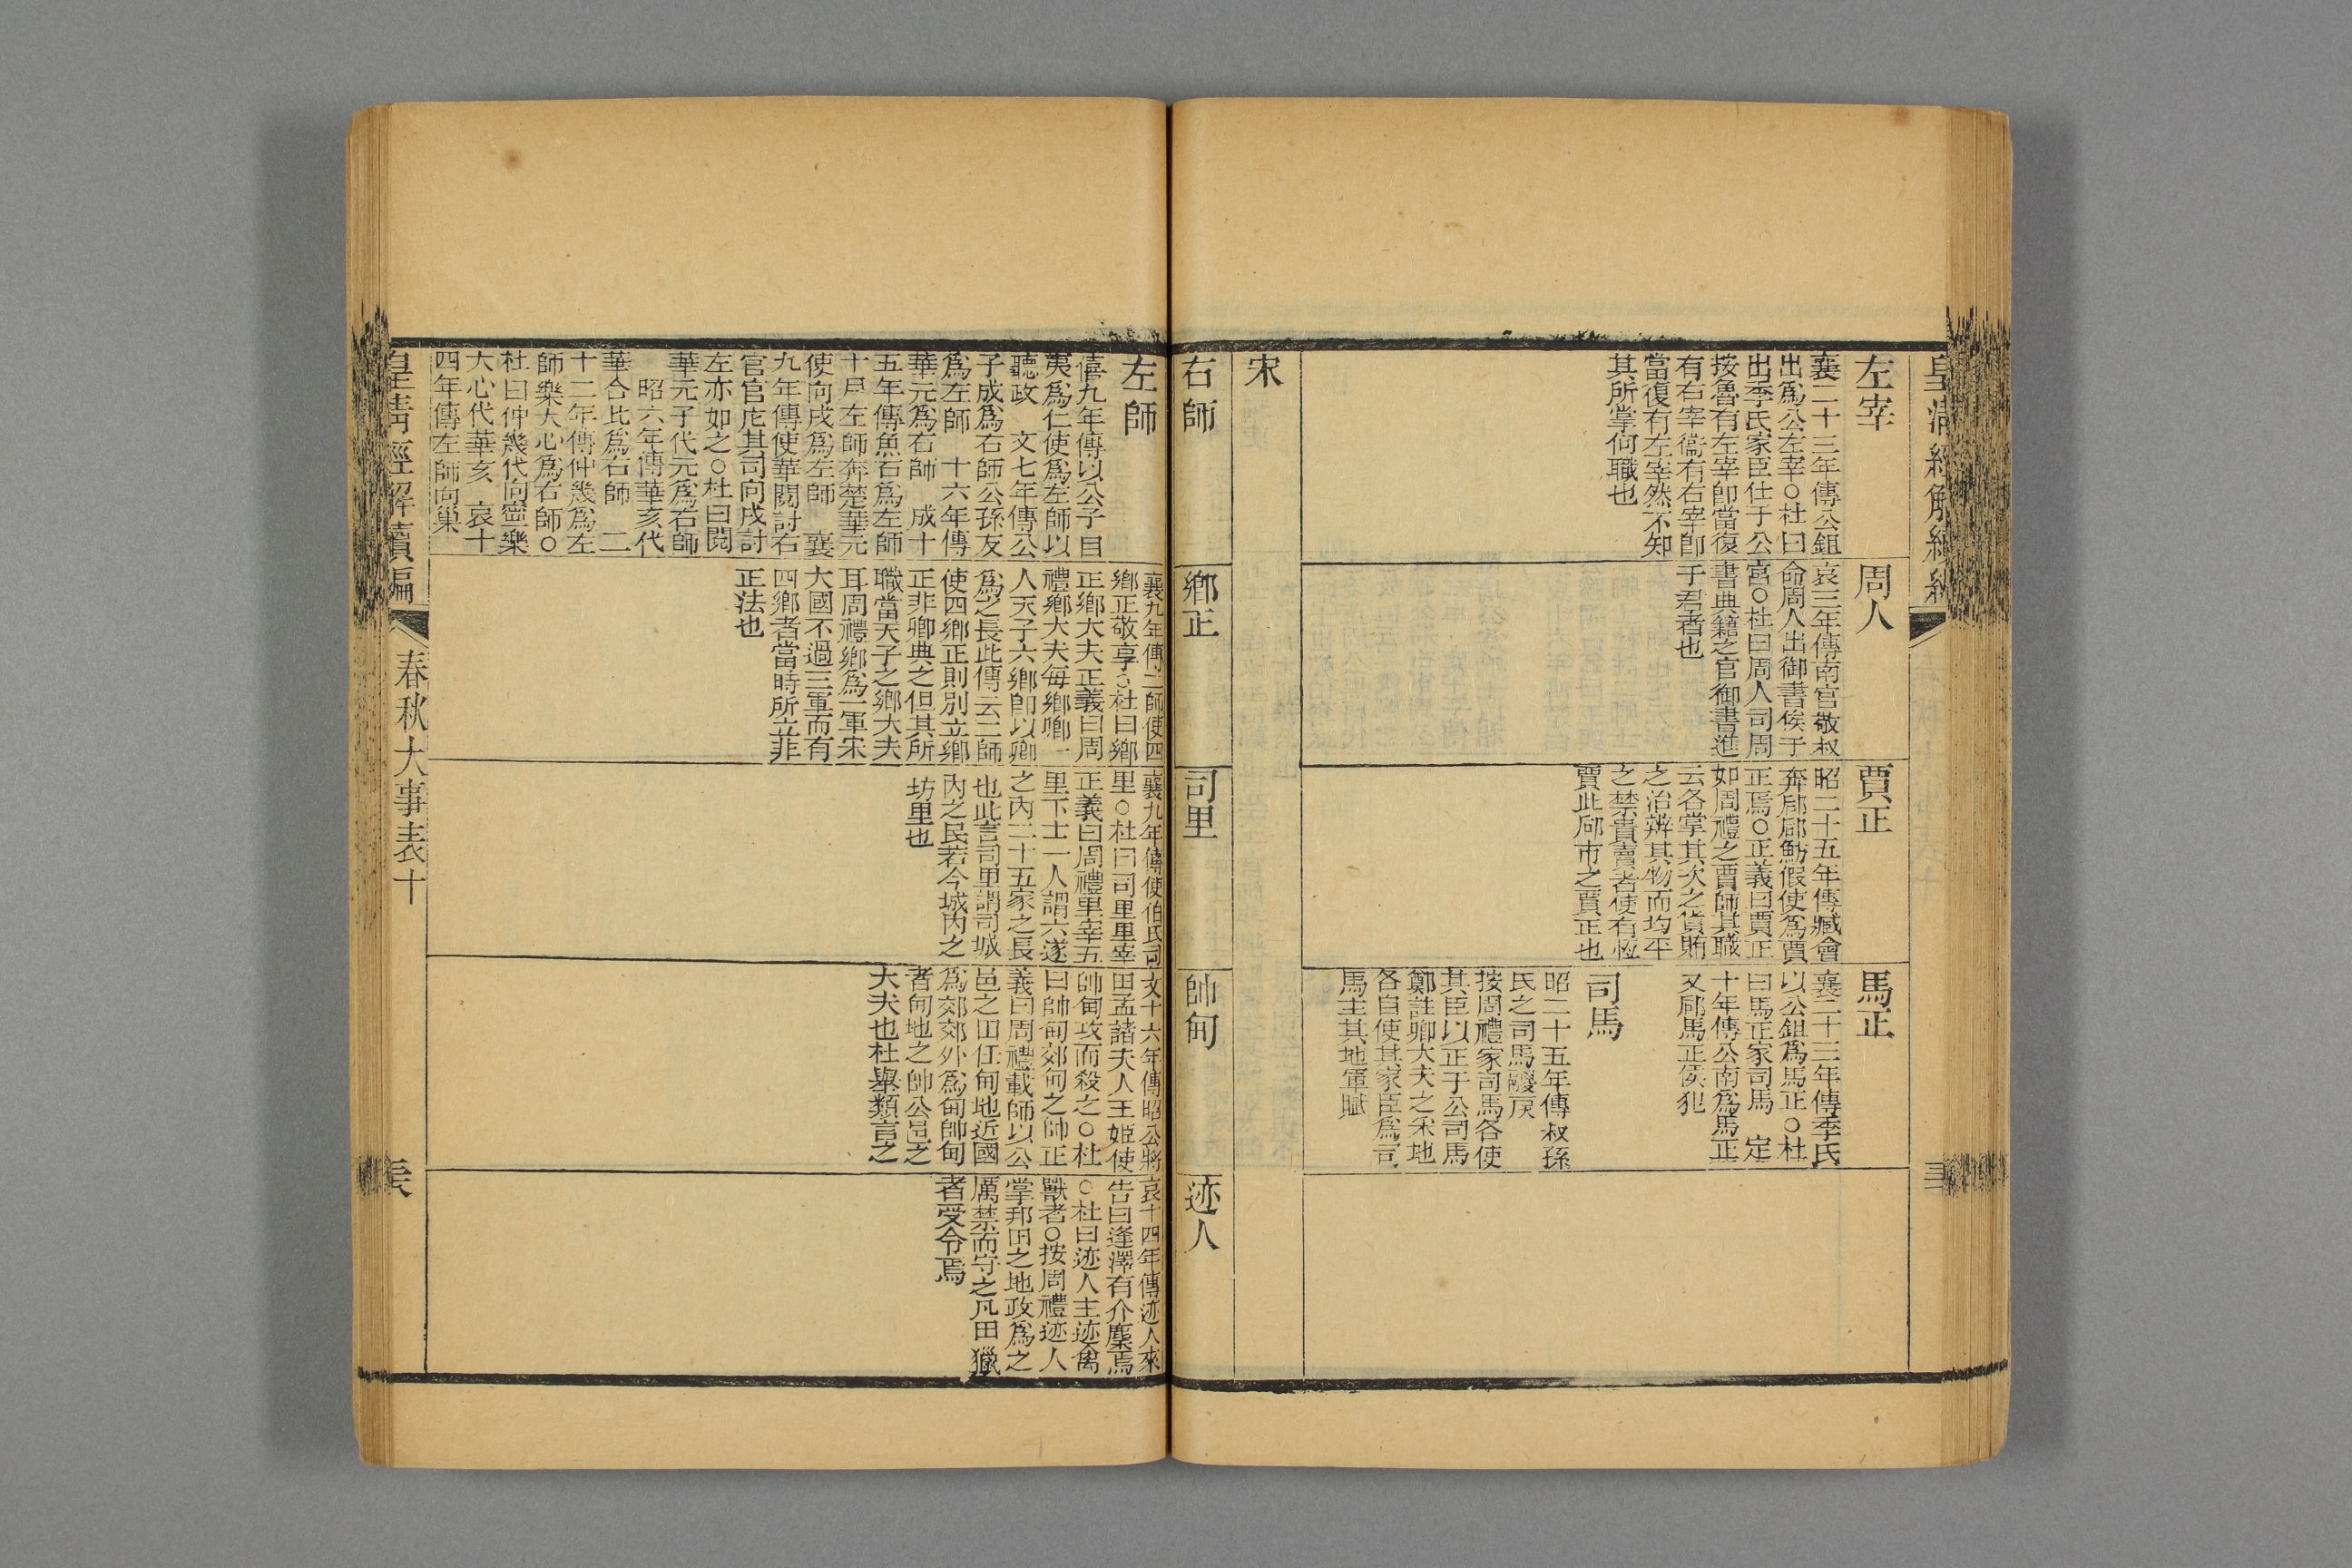 左宰
襄二十三年傳公鉏
出爲公左宰○杜曰
出季氏家臣仕于公
按魯有左宰卽當復
有右宰衞有右宰卽
當復有左宰然不知
其所掌何職也
周人
哀三年傳南宮敬叔
命周人出御書俟于
宮○杜曰周人司周
書典籍之官御書進
于君者也
賈正
昭二十五年傳臧會
奔郈郈魴假使爲賈
正焉○正義曰賈正
如周禮之賈師其職
云各掌其次之貨賄
之治辨其物而均平
之禁貴賣者使有恆
賈此郈市之賈正也
馬正
襄二十三年傳季氏
以公鉏爲馬正○杜
曰馬正家司馬　定
十年傳公南爲馬正
又郈馬正侯犯
司馬
昭二十五年傳叔孫
氏之司馬鬷戾
按周禮家司馬各使
其臣以正于公司馬
鄭註卿大夫之采地
各自使其家臣爲司
馬主其地軍賦
宋
右師
鄉正
司里
帥甸
迹人
左師
僖九年傳以公子目
夷爲仁使爲左師以
聽政　文七年傳公
子成爲右師公孫友
爲左師　十六年傳
華元爲右師　成十
五年傳魚石爲左師
十月左師奔楚華元
使向戌爲左師　襄
九年傳使華閱討右
官官庀其司向戌討
左亦如之○杜曰閱
華元子代元爲右師
昭六年傳華亥代
華合比爲右師　二
十二年傳仲幾爲左
師樂大心爲右師○
杜曰仲幾代向寍樂
大心代華亥　哀十
四年傳左師向巢
襄九年傳二師使四
鄉正敬享○杜曰鄉
正鄉大夫正義曰周
禮鄉大夫每鄉卿一
人天子六鄉卽以卿
爲之長此傳云二師
使四鄉正則別立鄉
正非卿典之但其所
職當天子之鄉大夫
耳周禮鄉爲一軍宋
大國不過三軍而有
四鄉者當時所立非
正法也
襄九年傳使伯氏司
里○杜曰司里里宰
正義曰周禮里宰五
里下士一人謂六遂
之內二十五家之長
也此言司里謂司城
內之民若今城內之
坊里也
文十六年傳昭公將
田孟諸夫人王姬使
帥甸攻而殺之○杜
曰帥甸郊甸之帥正
義曰周禮載師以公
邑之田任甸地近國
爲郊郊外爲甸帥甸
者甸地之帥公邑之
大夫也杜舉類言之
哀十四年傳迹人來
告曰逢澤有介麇焉
○杜曰迹人主迹禽
獸者○按周禮迹人
掌邦田之地政爲之
厲禁而守之凡田獵
者受令焉
皇淸經解續編
春秋大事表十